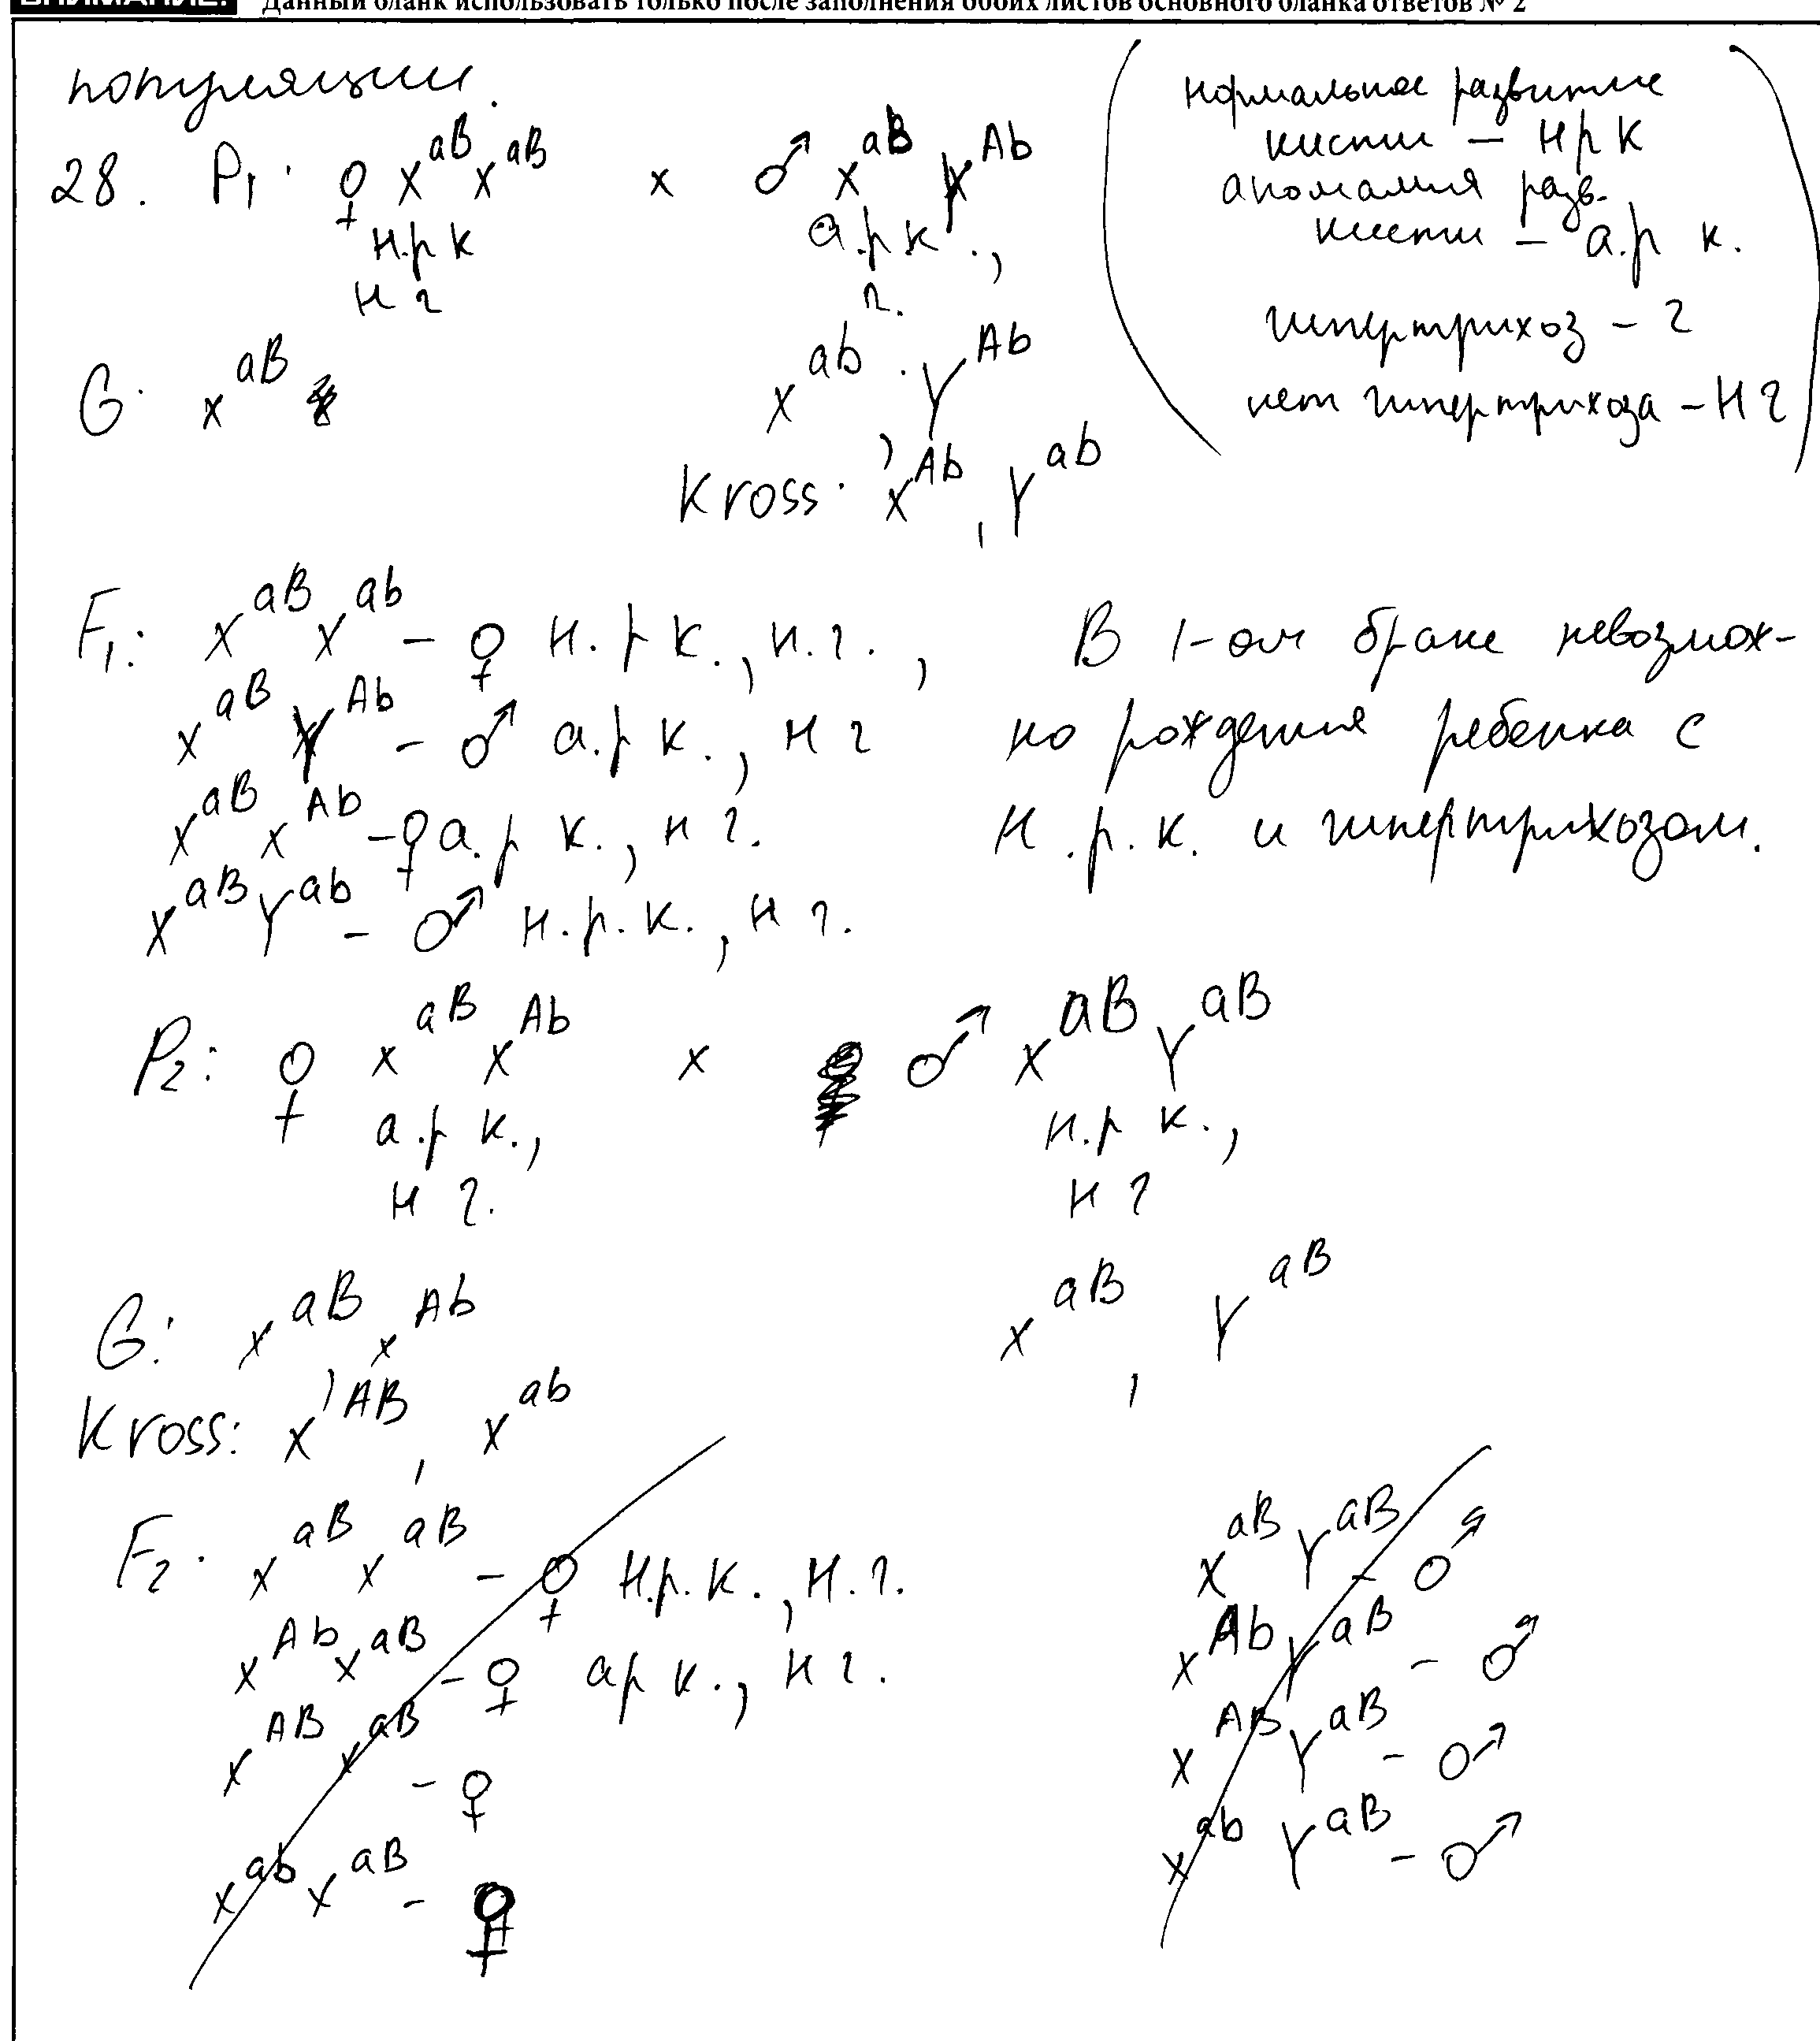 ВНИМАНИЕ! Данный бланк использовать только после заполнения обоих листов основного бланка ответов № 2
популяции.
28. P₁: ♀ X^aB X^aB x ♂ X^ab Y^Ab
н.р.к а.р.к.,
н г г.
(нормальное развитие
кисти – н р к
аномалия разв.
кисти – а.р к.
гипертрихоз – г
нет гипертрихоза – н г)
G: X^aB X^ab, Y^Ab
Kross: X^Ab, Y^ab
F₁: X^aB X^ab – ♀ н.р к., н.г.,
X^aB Y^Ab – ♂ а.р к., н г
X^aB X^Ab – ♀ а.р к., н г.
X^aB Y^ab – ♂ н.р.к., н г.
В 1-ом браке невозмож-
но рождения ребенка с
н.р.к. и гипертрихозом.
P₂: ♀ X^aB X^Ab x ♂ X^aB Y^aB
а.р к., н.р к.,
н г. н г
G: X^aB, X^Ab X^aB, Y^aB
Kross: X^AB, X^ab
F₂: X^aB X^aB – ♀ н.р.к., н.г. X^aB Y^aB – ♂
X^Ab X^aB – ♀ а р к., н г. X^Ab Y^aB – ♂
X^AB X^aB – ♀ X^AB Y^aB – ♂
X^ab X^aB – ♀ X^ab Y^aB – ♂